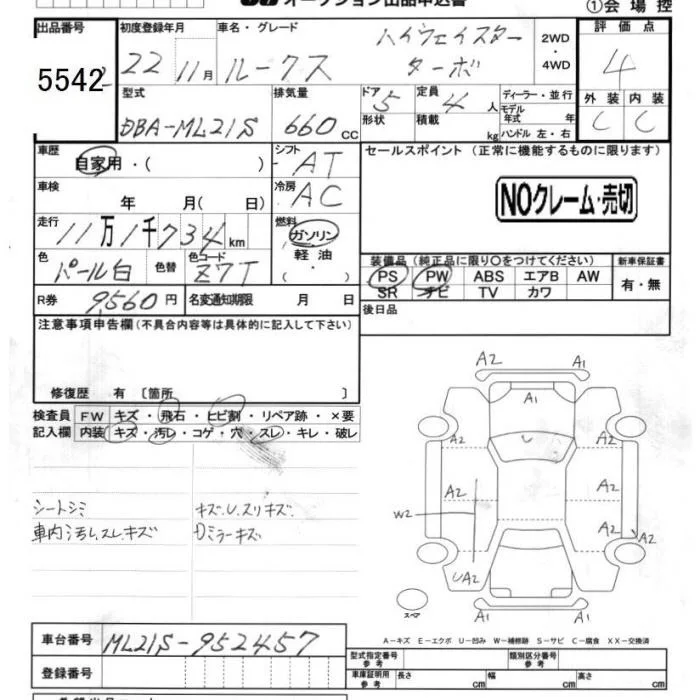 オークション出品申込書
①会場控
出品番号
5542
初度登録年月
22 11月
車名・グレード
ルークス ハイウェイスター ターボ
2WD・4WD
評価点
4
外装 内装
C C
型式
DBA-ML21S
排気量
660 CC
ドア 5
形状
定員 4 人
積載 kg
ディーラー・並行
モデル年式 年
ハンドル 左・右
車歴
自家用・( )
シフト
AT
車検
年 月( 日)
冷房
AC
走行
11万1千734 km
燃料
ガソリン
軽油
( ・ )
色
パール白
色替
色コード
Z7T
R券
9560円
名変通知期限 月 日
セールスポイント (正常に機能するものに限ります)
NOクレーム・売切
装備品 (純正品に限り○をつけてください)
新車保証書
PS PW ABS エアB AW
SR ナビ TV カワ
有・無
後日品
注意事項申告欄 (不具合内容等は具体的に記入して下さい)
修復歴 有 〔箇所 〕
検査員記入欄
FW キズ・飛石・ヒビ割・リペア跡・×要
内装 キズ・汚レ・コゲ・穴・スレ・キレ・破レ
シートシミ
車内汚レ、スレ、キズ
キズ.U.スリキズ.
Dミラーキズ
A2 A1
A1
U
A2 A2
A2 A2
W2
A2 A2
UA2 UA2
スペア
A1 A1
A-キズ E-エクボ U-凹み W-補修跡 S-サビ C-腐食 XX-交換済
車台番号
ML21S-952457
登録番号
型式指定番号 参考
類別区分番号 参考
車庫証明用 参考
長さ cm 幅 cm 高さ cm